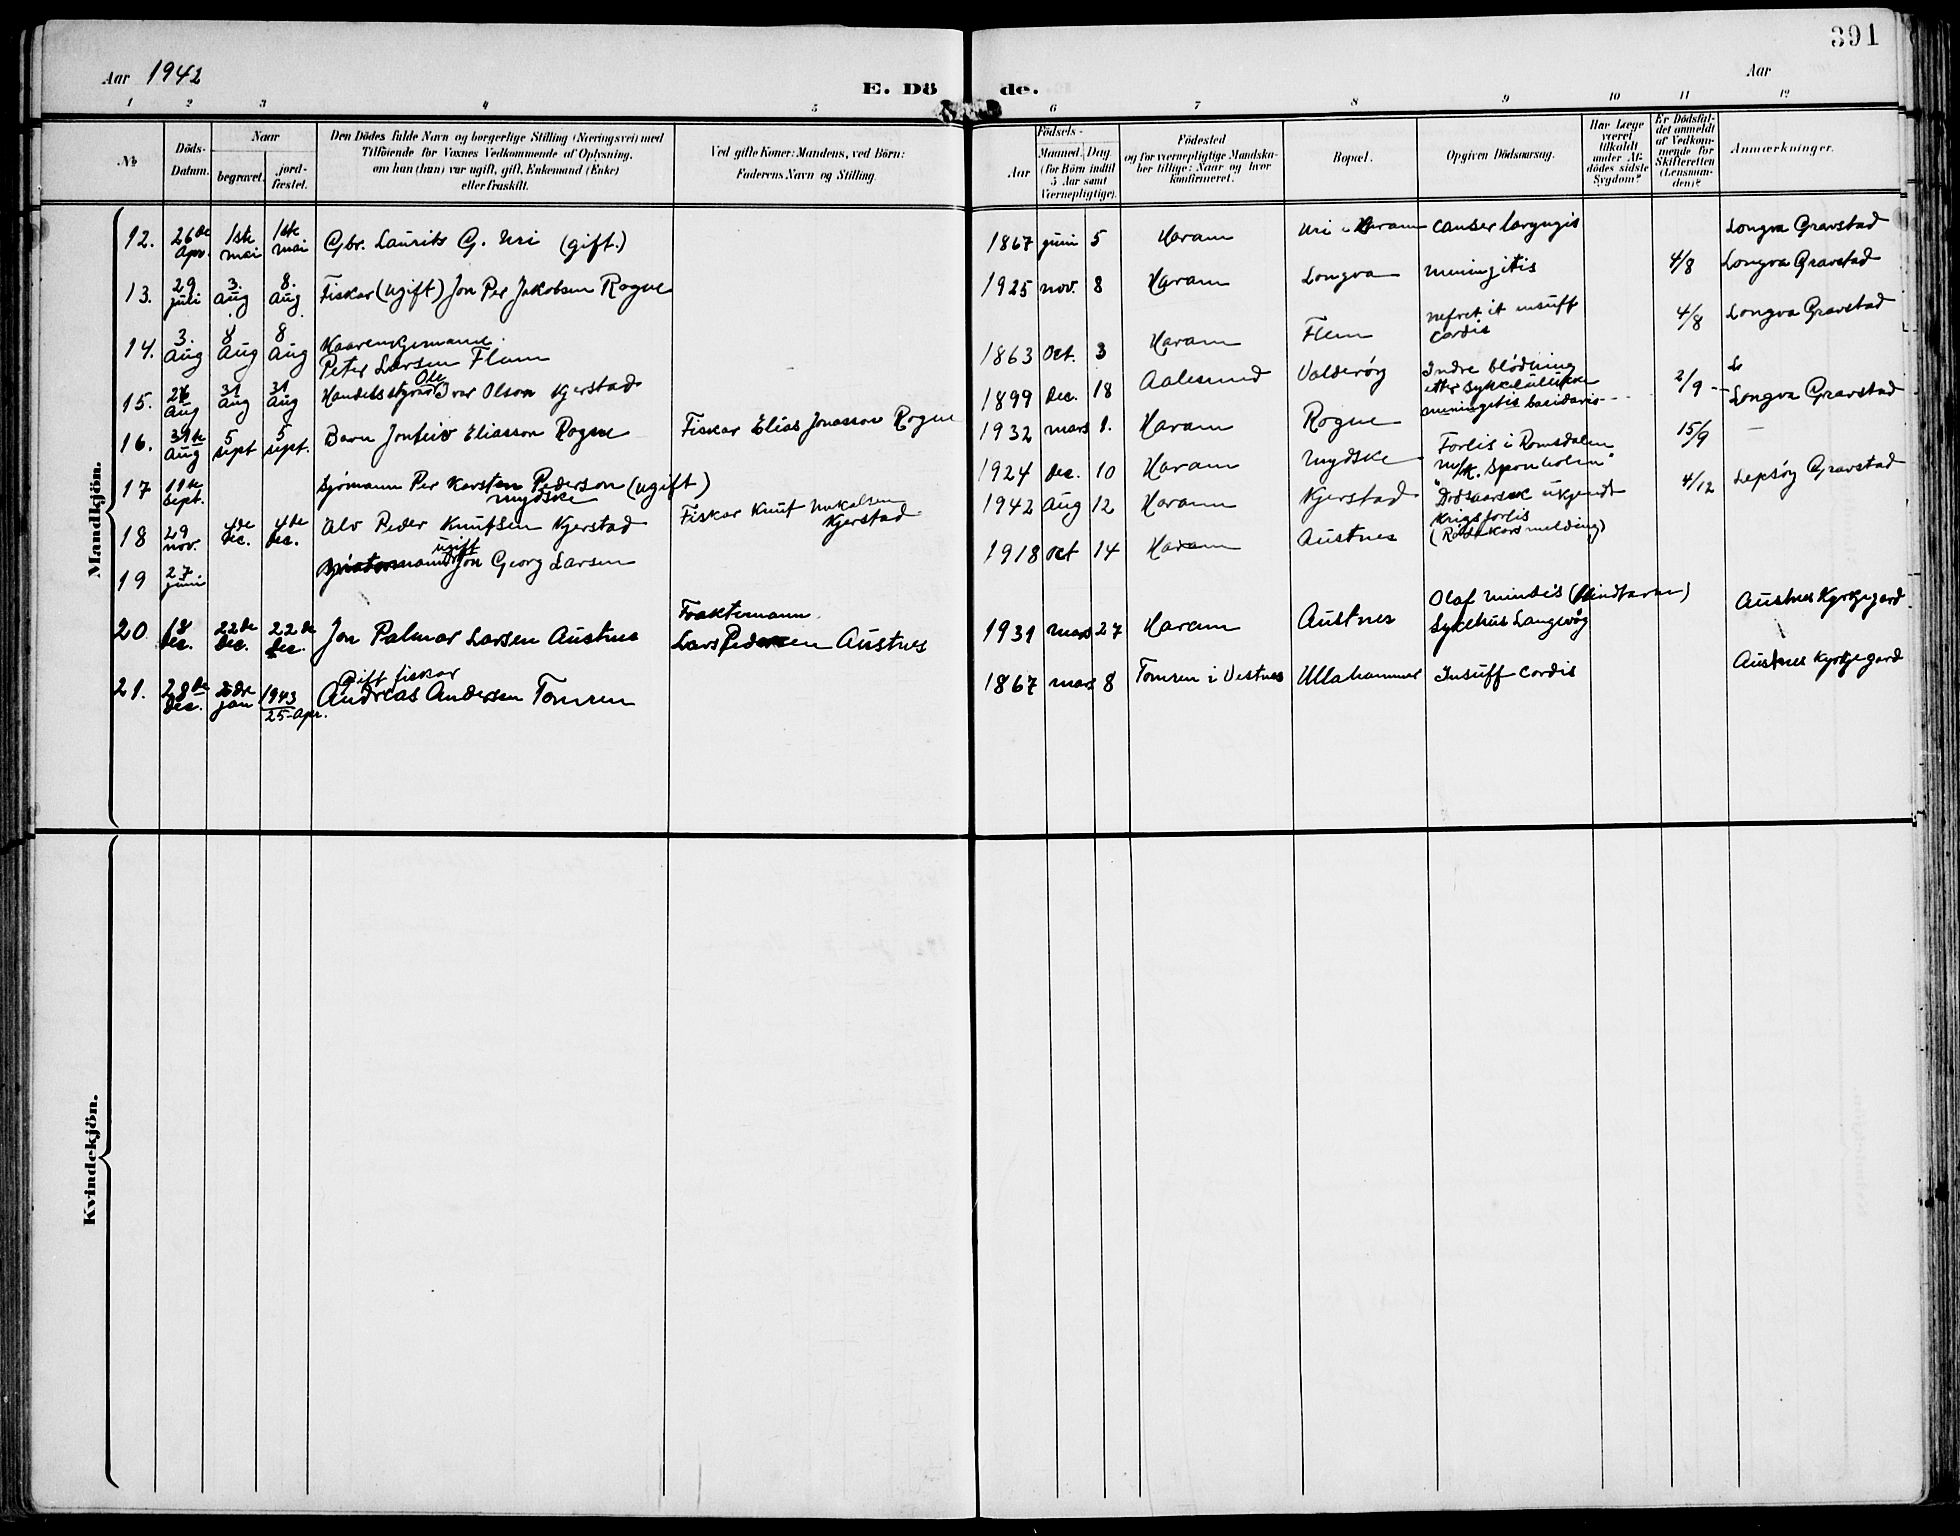 391
Aar 1942
E. Dö de.
Aar
1 2 3 4 5 6 7 8 9 10 11 12
No
Döds-
Datum.
Naar
begravet.
jord-
fæstet.
Den Dödes fulde Navn og borgerlige Stilling (Næringsvei) med
Tilföiende for Voxnes Vedkommende af Oplysning,
om han (hun) var ugift, gift, Enkemand (Enke)
eller fraskilt.
Ved gifte Koner: Mandens, ved Börn:
Faderens Navn og Stilling.
Födsels-
Aar
Maaned. Dag
(for Börn indtil
5 Aar samt
Værnepligtige).
Födested
og for værnepligtige Mandska-
ber tillige: Naar og hvor
konfirmeret.
Bopæl.
Opgiven Dödsaarsag.
Har Læge
været
tilkaldt
under Af-
dödes sidste
Sygdom?
Er Dödsfal-
det anmeldt
af Vedkom-
mende for
Skifteretten
(Lensman-
den)?
Anmærkninger.
Mandkjön.
12. 26de Apr. 1ste mai 1ste mai Gbr. Laurits G. Uri (gift.) 1867 juni 5 Haram Uri i Haram canser laryngis Longva Gravstad
13. 29 juli 3. aug 8. aug Fiskar (ugift) Jon Per Jakobsen Rogne 1925 nov. 8 Haram Longva meningitis 4/8 Longva Gravstad
14. 3. Aug 8 Aug 8 Aug
Peter Larsen Flem 1863 Oct. 3 Haram Flem nefrit it insuff
cordis 4/8 Longva Gravstad
15. 26 Aug 31 Aug 31 Aug Handelsstyrar Ole Ivar Olson Kjerstad 1899 Dec. 18 Aalesund Valderøy Indre blödning
etter sykelulukke 2/9 Longva Gravstad
16. 31te Aug 5 sept 5 sept. Barn Eliasson Rogne Fiskar Elias Jonasson Rogne 1932 mars 1. Haram Rogne meningitis 15/9 —
17 11te Sept. Sjømann Per Karsten Pederson (ugift)
Mydske 1924 Dec. 10 Haram Mydske Forlis i Romsdalen
m/k. "Sponholm"
18 29 nov. 4de Dec. 4de Dec. Alv Peder Knutsen Kjerstad Fiskar Knut
Kjerstad 1942 Aug 12 Haram Kjerstad Dødsaarsak ukjendt 4/12 Lepsøy Gravstad
19 27 juni ugift
Jon Georg Larsen 1918 Oct 14 Haram Austnes Krigsforlis
(Røde Kors melding)
20 18 Dec. 22de Dec. 22de Dec. Jon Palmar Larsen Austnes Fraktemann
Lars Pedersen Austnes 1931 mars 27 Haram Austnes Olaf mindes (blindtarm)
Sykehus Langevåg Austnes Kyrkjegard
21. 28de Dec. 2dre jan 1943
25-Apr. Gift fiskar
Andreas Andersen Tomren 1867 mars 8 Tomren i Vestnes Ullahammer Insuff cordis Austnes Kyrkjegard
Kvindekjön.